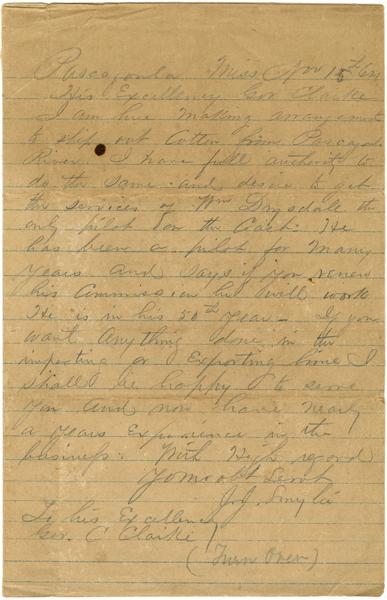 Pascagoula Miss Nov 15th/64
His Excellency Gov Clarke
I am here making arrangements
to ship out Cotton from Pascagoula
River. I have full authority to
do the same and desire to get
the services of Wm Drysdale the
only pilot on the Coast. He
has been a pilot for many
years and says if you renew
his Commission he will work
He is in his 50th year - If you
want anything done in the
importing or Exporting line I
shall be happy to serve
you and now have nearly
a years Experience in the
business. With High regard
Your obt Servt
J. J.
To his Excellency
Gov. C Clarke
(Turn Over)